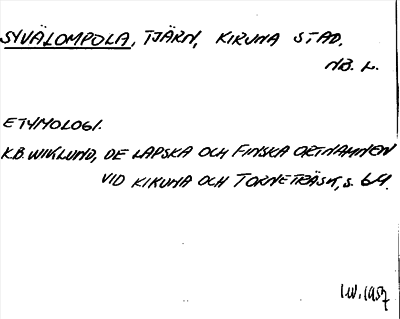 SYVÄLOMPOLA, TJÄRN, KIRUNA STAD.
NB. L.
ETYMOLOGI.
K.B. WIKLUND, DE LAPSKA OCH FINSKA ORTNAMNEN
VID KIRUNA OCH TORNETRÄSK, s. 64.
I.W. 1957